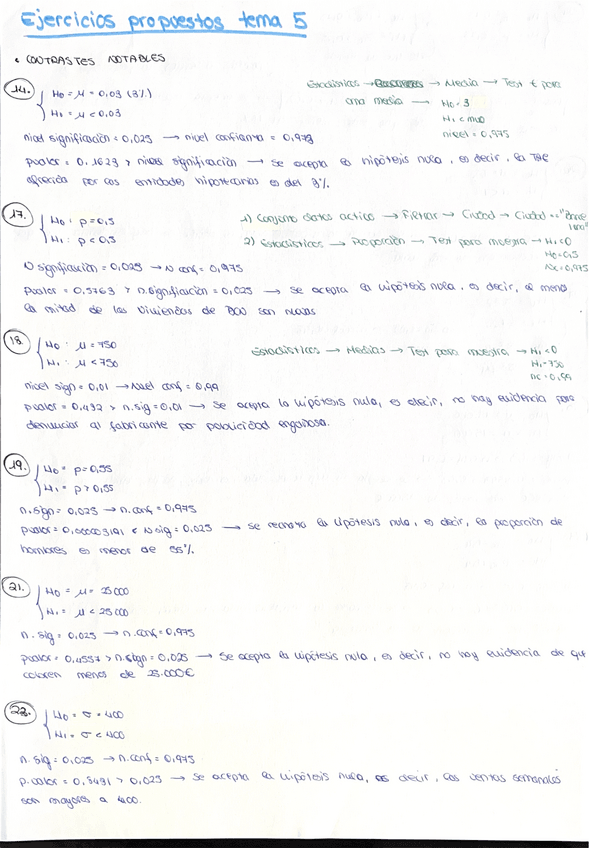 Ejercicios propuestos tema 5
• CONTRASTES NOTABLES
14. H0 = μ = 0,03 (3%)
H1 = μ < 0,03
Estadísticos → → Media → Test t para
una media → H0 = 3
H1 < mu0
nivel = 0,975
nivel significación = 0,025 → nivel confianza = 0,975
pvalor = 0,1623 > nivel significación → Se acepta la hipótesis nula, es decir, la TAE
ofrecida por las entidades hipotecarias es del 3%.
17. H0 : p = 0,5
H1 : p < 0,5
1) Conjunto datos activo → Filtrar → Ciudad → Ciudad ==
2) Estadísticos → Proporción → Test para muestra → H1 < 0
H0 = 0,5
Nc = 0,975
N significación = 0,025 → N conf = 0,975
Pvalor = 0,5763 > n.significación = 0,025 → Se acepta la hipótesis nula, es decir, al menos
la mitad de las viviendas de son nuevas
18. H0 : μ = 750
H1 : μ < 750
Estadísticos → Medias → Test para muestra → H1 < 0
H1 = 750
nc = 0,99
nivel sign = 0,01 → Nivel conf = 0,99
pvalor = 0,432 > n.sig = 0,01 → Se acepta la hipótesis nula, es decir, no hay evidencia para
denunciar al fabricante por publicidad engañosa.
19. H0 = p = 0,55
H1 = p > 0,55
n.sign = 0,025 → n.conf = 0,975
pvalor = 0,00003191 < N sig = 0,025 → Se rechaza la hipótesis nula, es decir, la proporción de
hombres es menor de 55%.
21. H0 = μ = 25000
H1 = μ < 25000
n. sig = 0,025 → n.conf = 0,975
pvalor = 0,4557 > n.sign = 0,025 → Se acepta la hipótesis nula, es decir, no hay evidencia de que
cobren menos de 25.000€
22. H0 = σ = 400
H1 = σ < 400
n. sig = 0,025 → n.conf = 0,975
p.valor = 0,5491 > 0,025 → Se acepta la hipótesis nula, es decir, las ventas semanales
son mayores a 400.